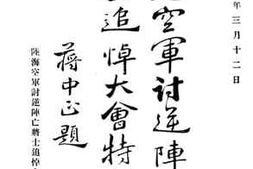 年三月十二日
空軍討逆陣
追悼大會特
蔣中正題
陸海空軍討逆陣亡將士追悼大